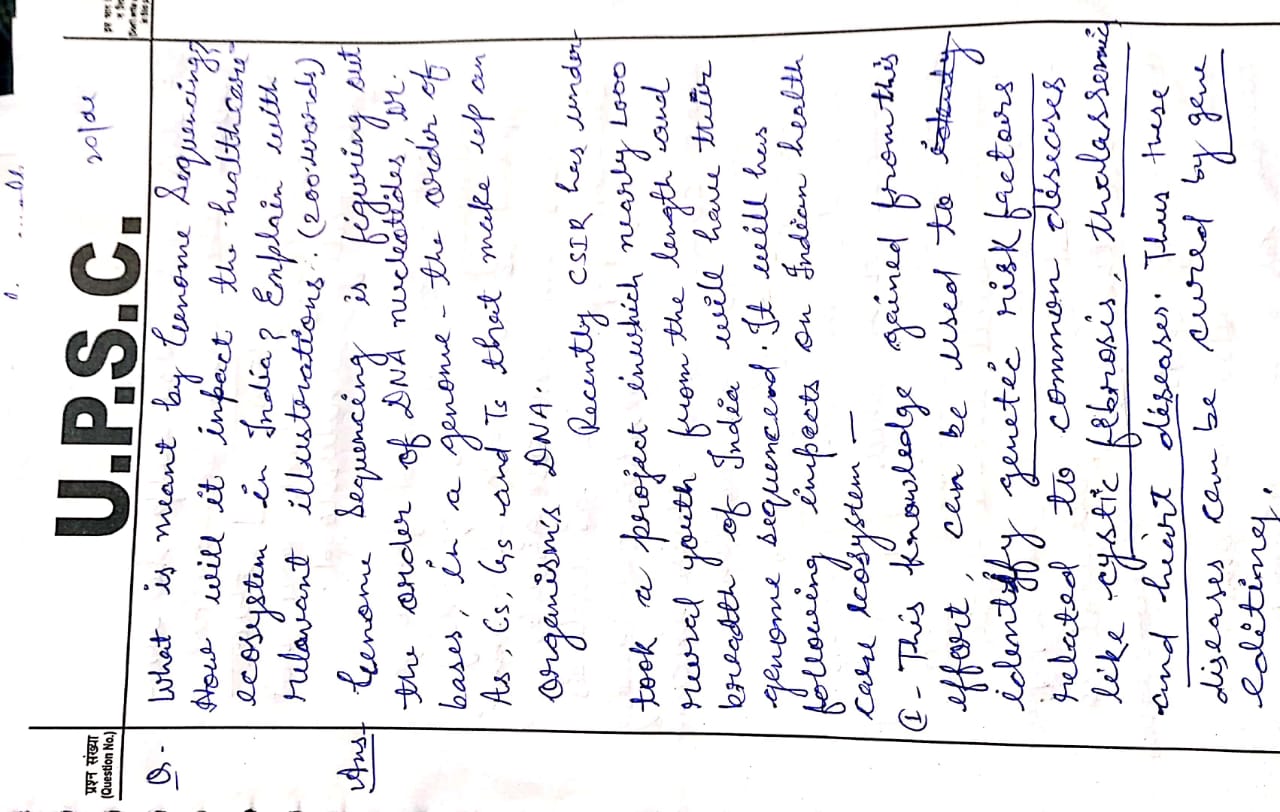 U.P.S.C.
प्रश्न संख्या
(Question No.)
20/ae
Q.- What is meant by Genome Sequencing?
How will it inpact the healthcare-
ecosystem in India? Explain with
relavant illusterations. (200 words)
Ans- Genome Sequencing is figuring out
the order of DNA nucleotides, or
bases, in a genome - the order of
As, Cs, Gs and Ts that make up an
organism's DNA.
Recently CSIR has under
took a project inwhich nearly 1000
rural youth from the length and
breadth of India will have their
genome sequencend. It will has
following impacts on Indian health
care ecosystem -
① - This knowledge gained from this
effort, can be used to
identify genetic risk factors
related to common diseases
like cystic fibrosis, thalassemic
and heart diseases. Thus these
diseases can be cured by gene
editing.